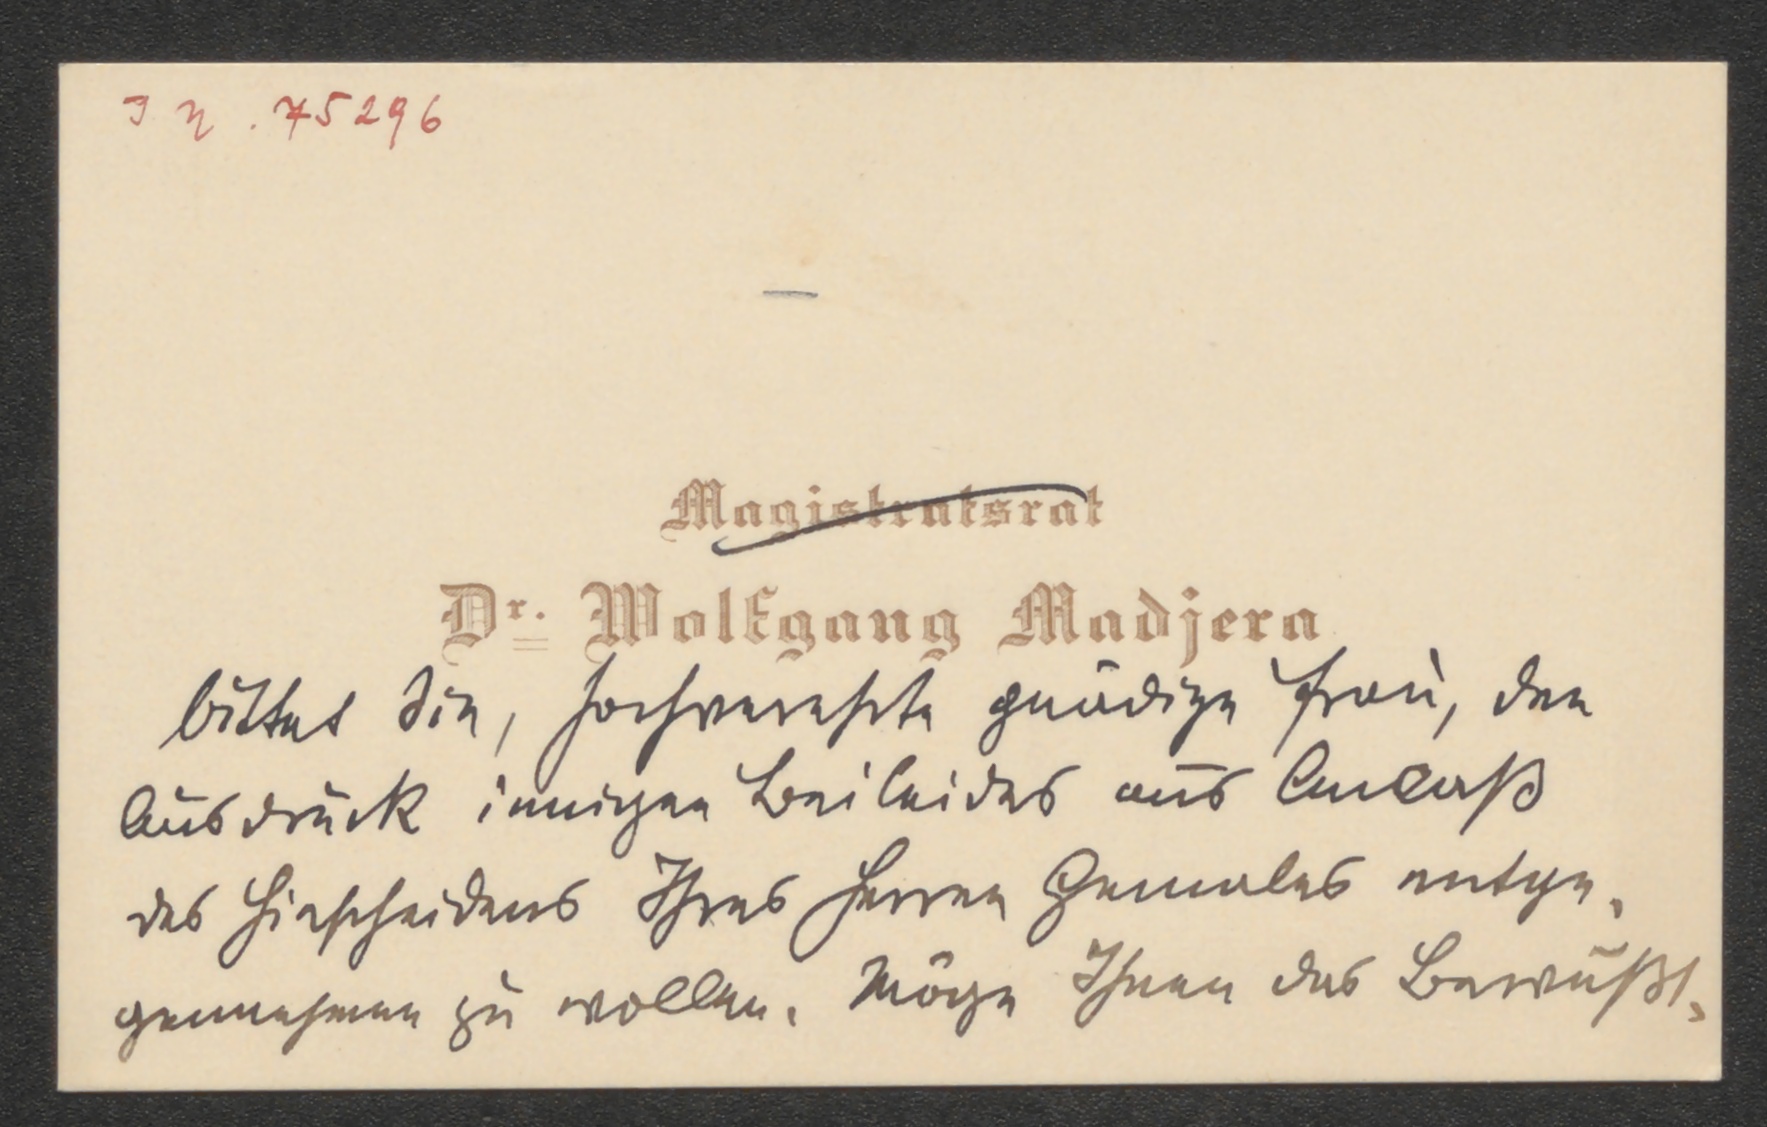 I N. 75296
Magistratsrat
Dr. Wolfgang Madjera
bittet Sie, hochverehrte gnädige Frau, den
Ausdruck innigen Beileides aus Anlaß
des Hinscheidens Ihres Herren Gemales entge-
gennehmen zu wollen. Möge Ihnen das Bewußt-